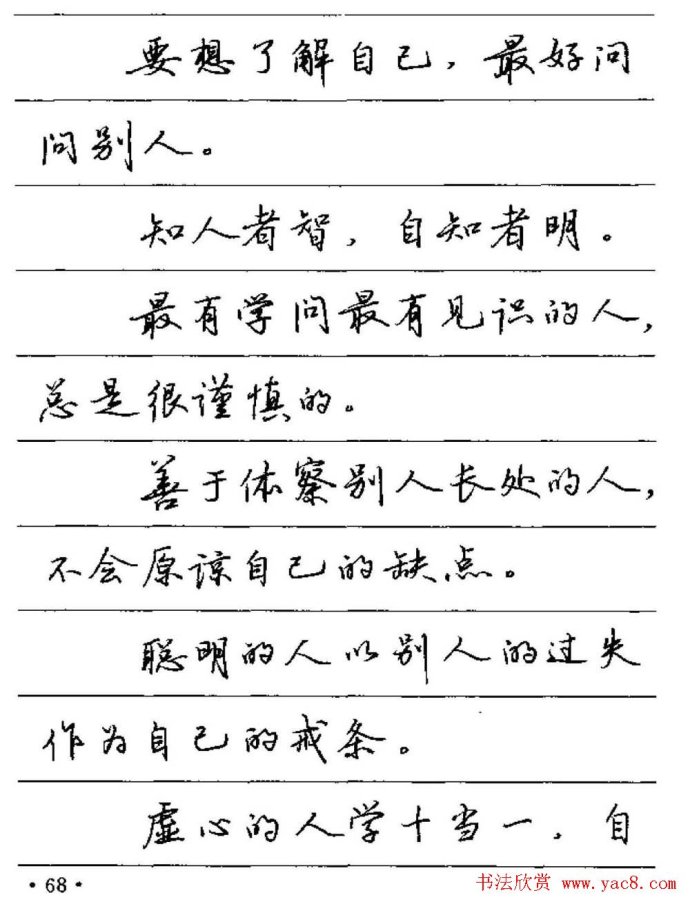 要想了解自己，最好问
问别人。
知人者智，自知者明。
最有学问最有见识的人，
总是很谨慎的。
善于体察别人长处的人，
不会原谅自己的缺点。
聪明的人以别人的过失
作为自己的戒条。
虚心的人学十当一，自
·68·
书法欣赏 www.yac8.com